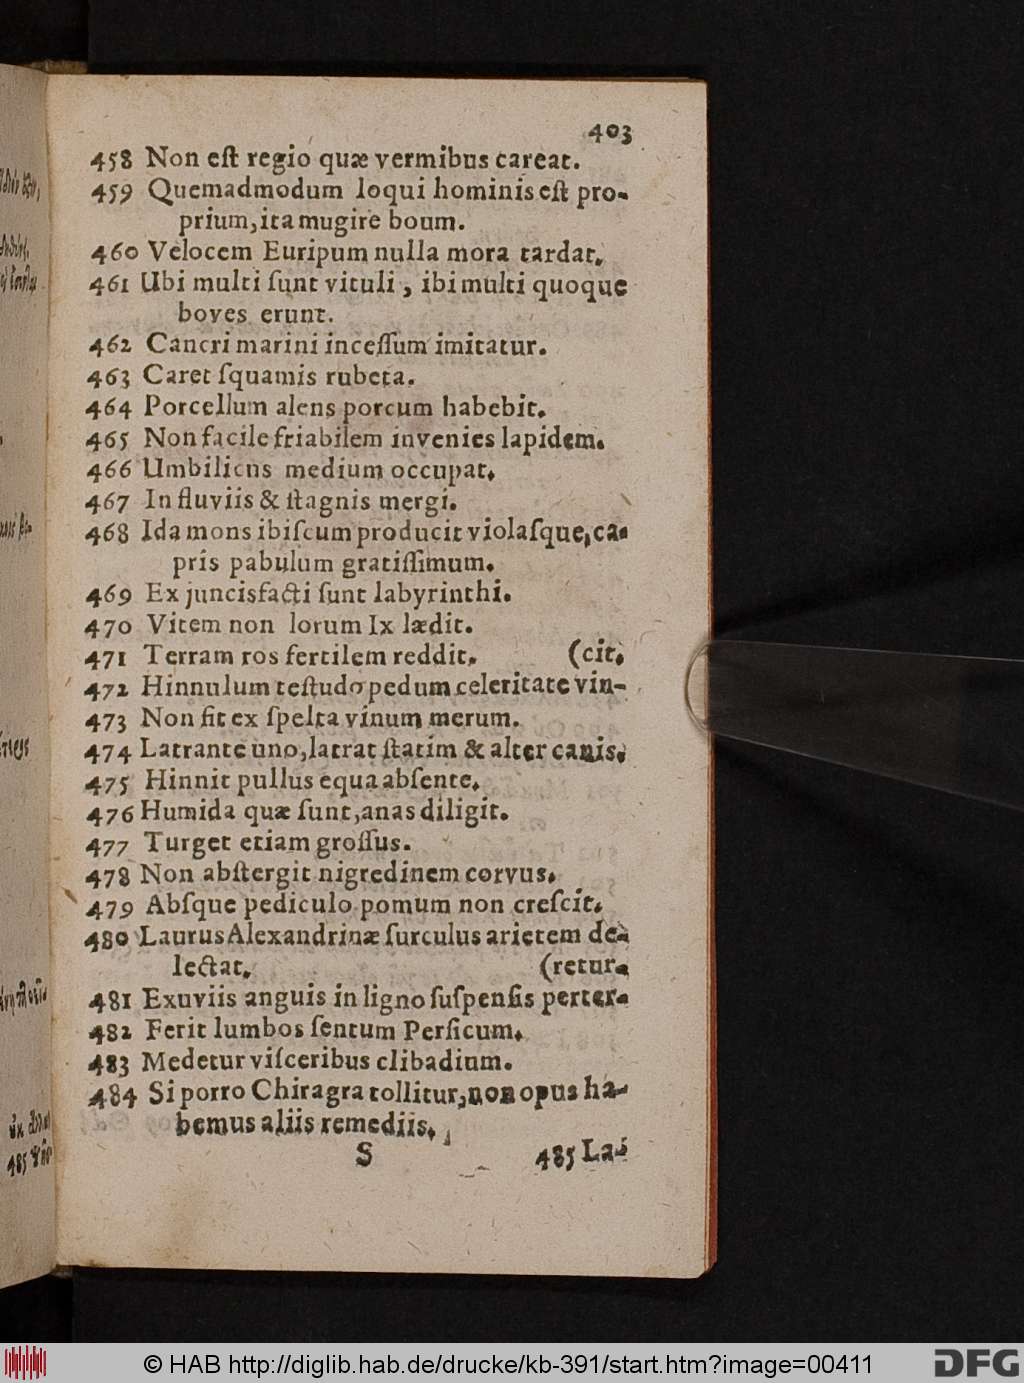 403
458 Non eſt regio quæ vermibus careat.
459 Quemadmodum loqui hominis eſt pro-
prium, ita mugire boum.
460 Velocem Euripum nulla mora tardat.
461 Ubi multi ſunt vituli, ibi multi quoque
boves erunt.
462 Cancri marini inceſſum imitatur.
463 Caret ſquamis rubeta.
464 Porcellum alens porcum habebit.
465 Non facile friabilem invenies lapidem.
466 Umbilicus medium occupat.
467 In fluviis & ſtagnis mergi.
468 Ida mons ibiſcum producit violaſque, ca-
pris pabulum gratiſſimum.
469 Ex juncis facti ſunt labyrinthi.
470 Vitem non lorum Ix lædit.
471 Terram ros fertilem reddit. (cit.
472 Hinnulum teſtudo pedum celeritate vin-
473 Non fit ex ſpelta vinum merum.
474 Latrante uno, latrat ſtatim & alter canis.
475 Hinnit pullus equa abſente.
476 Humida quæ ſunt, anas diligit.
477 Turget etiam groſſus.
478 Non abſtergit nigredinem corvus.
479 Abſque pediculo pomum non creſcit.
480 Laurus Alexandrinæ ſurculus arietem de-
lectat. (retur.
481 Exuviis anguis in ligno ſuſpenſis perter-
482 Ferit lumbos ſentum Perſicum.
483 Medetur viſceribus clibadium.
484 Si porro Chiragra tollitur, non opus ha-
bemus aliis remediis.
S 485 La-
© HAB http://diglib.hab.de/drucke/kb-391/start.htm?image=00411
DFG